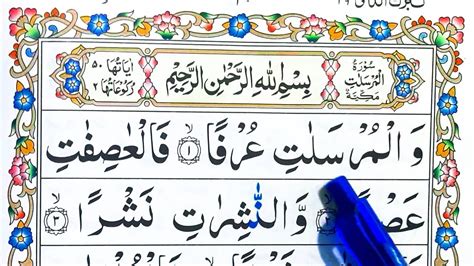 سُوْرَةُ الْمُرْسَلٰتِ مَكِّيَّةٌ
بِسْمِ اللّٰهِ الرَّحْمٰنِ الرَّحِيْمِ
اٰيَاتُهَا ٥٠ رُكُوْعَاتُهَا ٢
وَ الْمُرْسَلٰتِ عُرْفًا ۙ﴿۱﴾ فَالْعٰصِفٰتِ
وَّالنّٰشِرٰتِ نَشْرًا ۙ﴿۳﴾